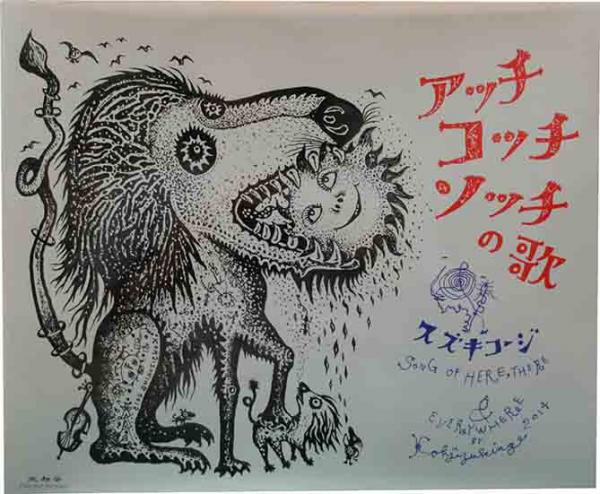 アッチ
コッチ
ソッチ
の歌
スズキコージ
SONG OF HERE, THERE
EVERYWHERE
BY
2014